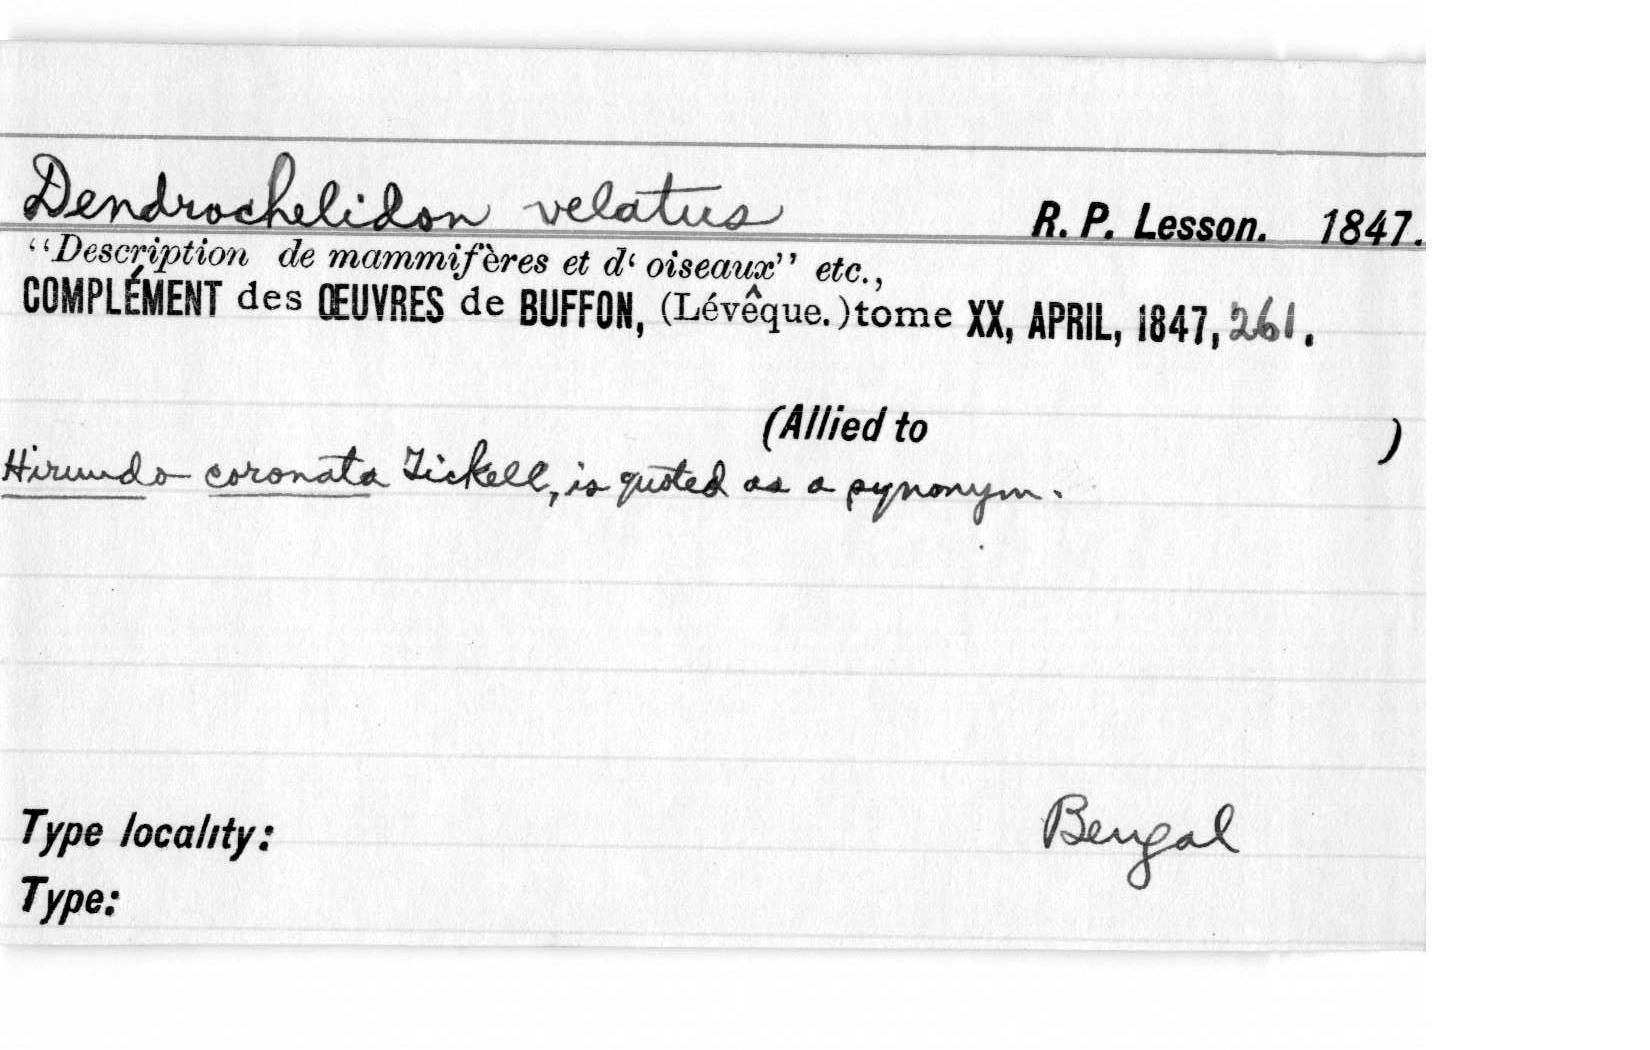 Dendrochelidon velatus R. P. Lesson. 1847.
“Description de mammifères et d‘ oiseaux” etc.,
COMPLÉMENT des ŒUVRES de BUFFON, (Lévêque.) tome XX, APRIL, 1847, 261.
(Allied to )
Hirundo coronata Tickell, is quoted as a synonym.
Type locality: Bengal
Type: